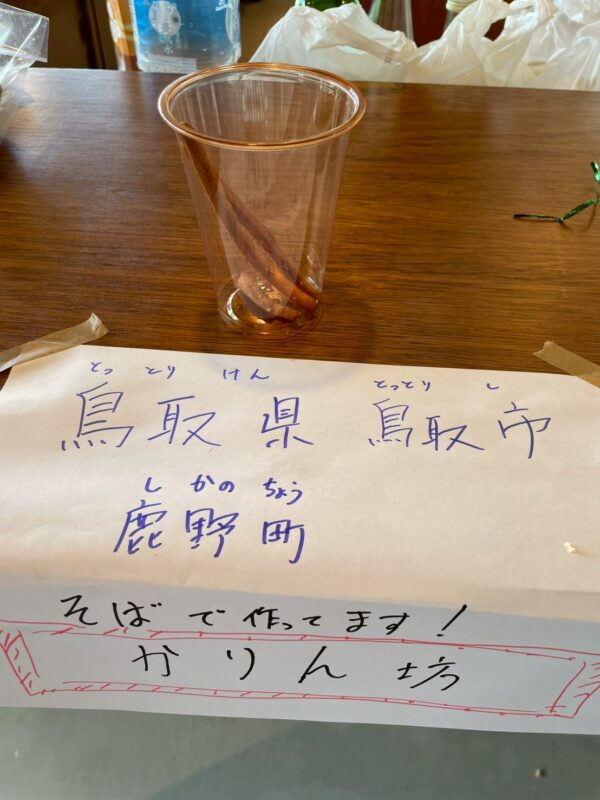 とっとりけん とっとりし
鳥取県 鳥取市
しかのちょう
鹿野町
そばで作ってます!
かりん坊